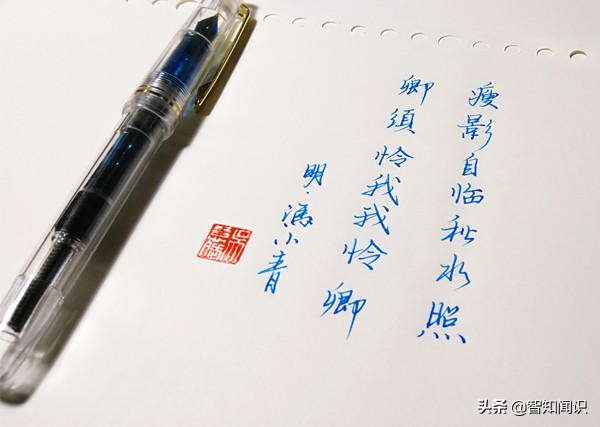 瘦影自临秋水照
卿須怜我我怜卿
明·馮小青
头条 @智知闻识